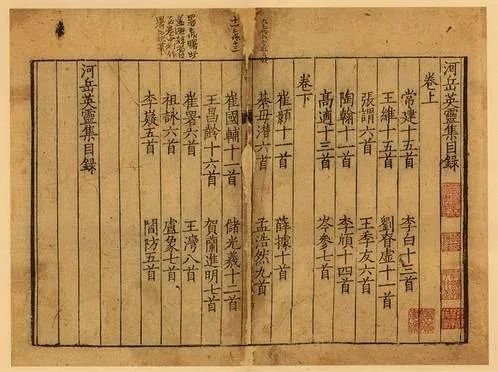 河岳英靈集目録
卷上
常建十五首 李白十三首
王維十五首 劉眘虚十一首
張謂六首 王季友六首
陶翰十一首 李頎十四首
高適十三首 岑參七首
卷下
崔顥十一首 薛據十首
綦毋潛六首 孟浩然九首
崔國輔十一首 儲光羲十二首
王昌齡十六首 賀蘭進明七首
崔署六首 王灣八首
祖詠六首 盧象七首
李嶷五首 閻防五首
河岳英靈集目録